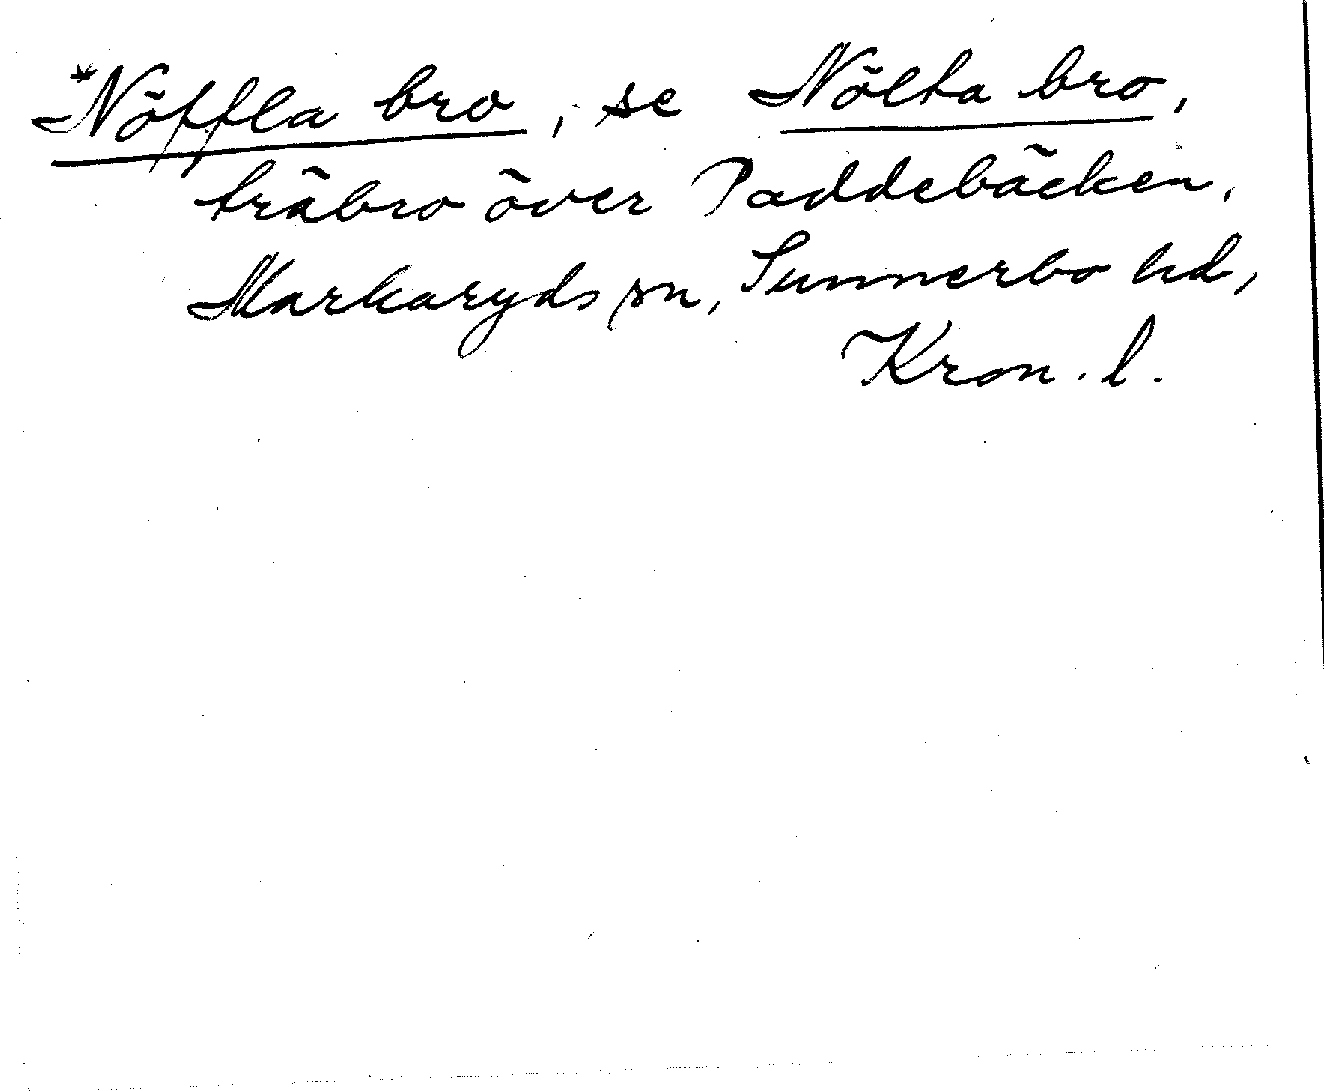 *Nöffla bro, se Nölta bro,
träbro över Paddebäcken,
Markaryds sn, Sunnerbo hd,
Kron. l.